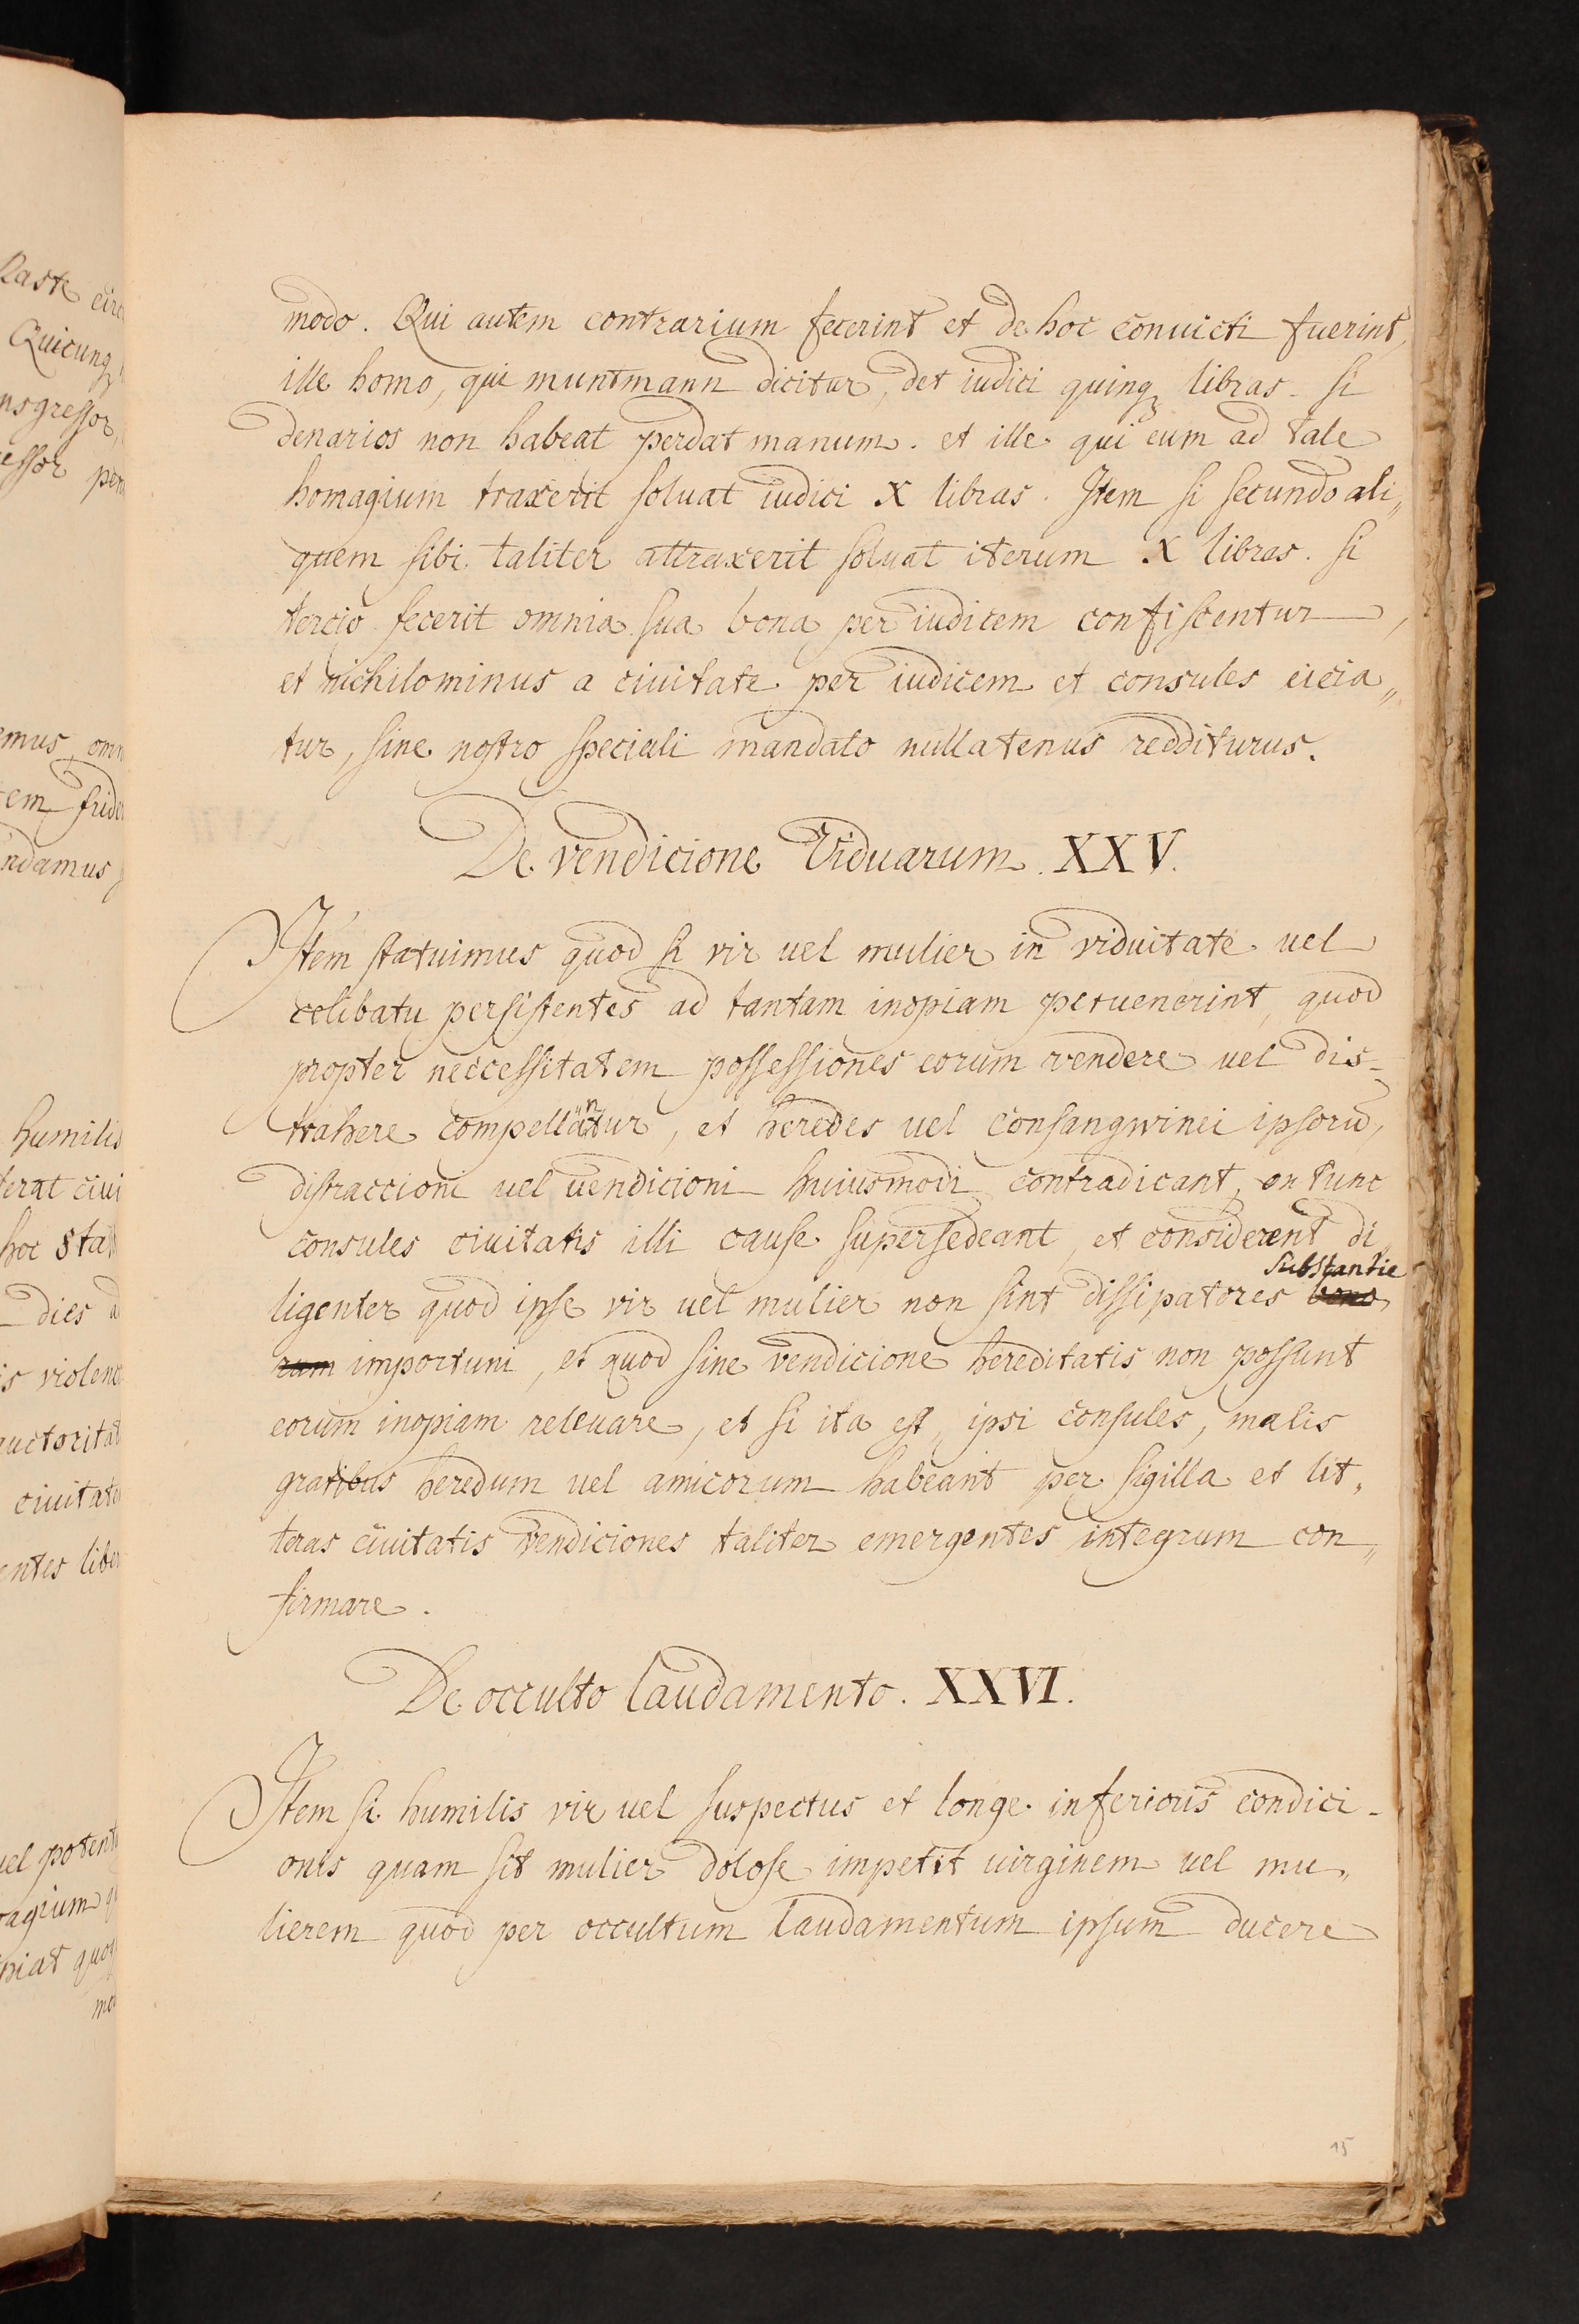 modo. Qui autem contrarium fecerint et de hoc conuicti fuerint,
ille homo, qui muntmann dicitur, det iudici quinqꝫ libras. si
denarios non habeat perdat manum. et ille qui eum ad tale
homagium traxerit soluat iudici X libras. Item si secundo ali„
quem sibi taliter attraxerit soluat iterum X libras. si
tercio fecerit omnia sua bona per iudicem confiscentur,
et nichilominus a ciuitate per iudicem et consules eicia„
tur, sine nostro speciali mandato nullatenus redditurus.
De vendicione Viduarum. XXV.
Item statuimus quod si vir uel mulier in viduitate uel
celibatu persistentes ad tantam inopiam peruenerint, quod
propter neccessitatem possessiones eorum vendere uel dis-
trahere compellantur, et heredes uel consangwinei ipsorū,
distraccioni uel uendicioni huiusmodi contradicant, ex tunc
consules ciuitatis illi cause supersedeant, et considerent di
substantie
ligenter quod ipse vir uel mulier non sint dissipatores bono
rum importuni, et quod sine vendicione hereditatis non possunt
eorum inopiam releuare, et si ita est, ipsi consules, malis
gratibus heredum uel amicorum habeant per sigilla et lit„
teras ciuitatis vendiciones taliter emergentes integrum con„
firmare.
De occulto laudamento. XXVI.
Item si humilis vir uel suspectus et longe inferioris condici-
onis quam sit mulier dolose impetit uirginem uel mu„
lierem quod per occultum laudamentum ipsum ducere
15